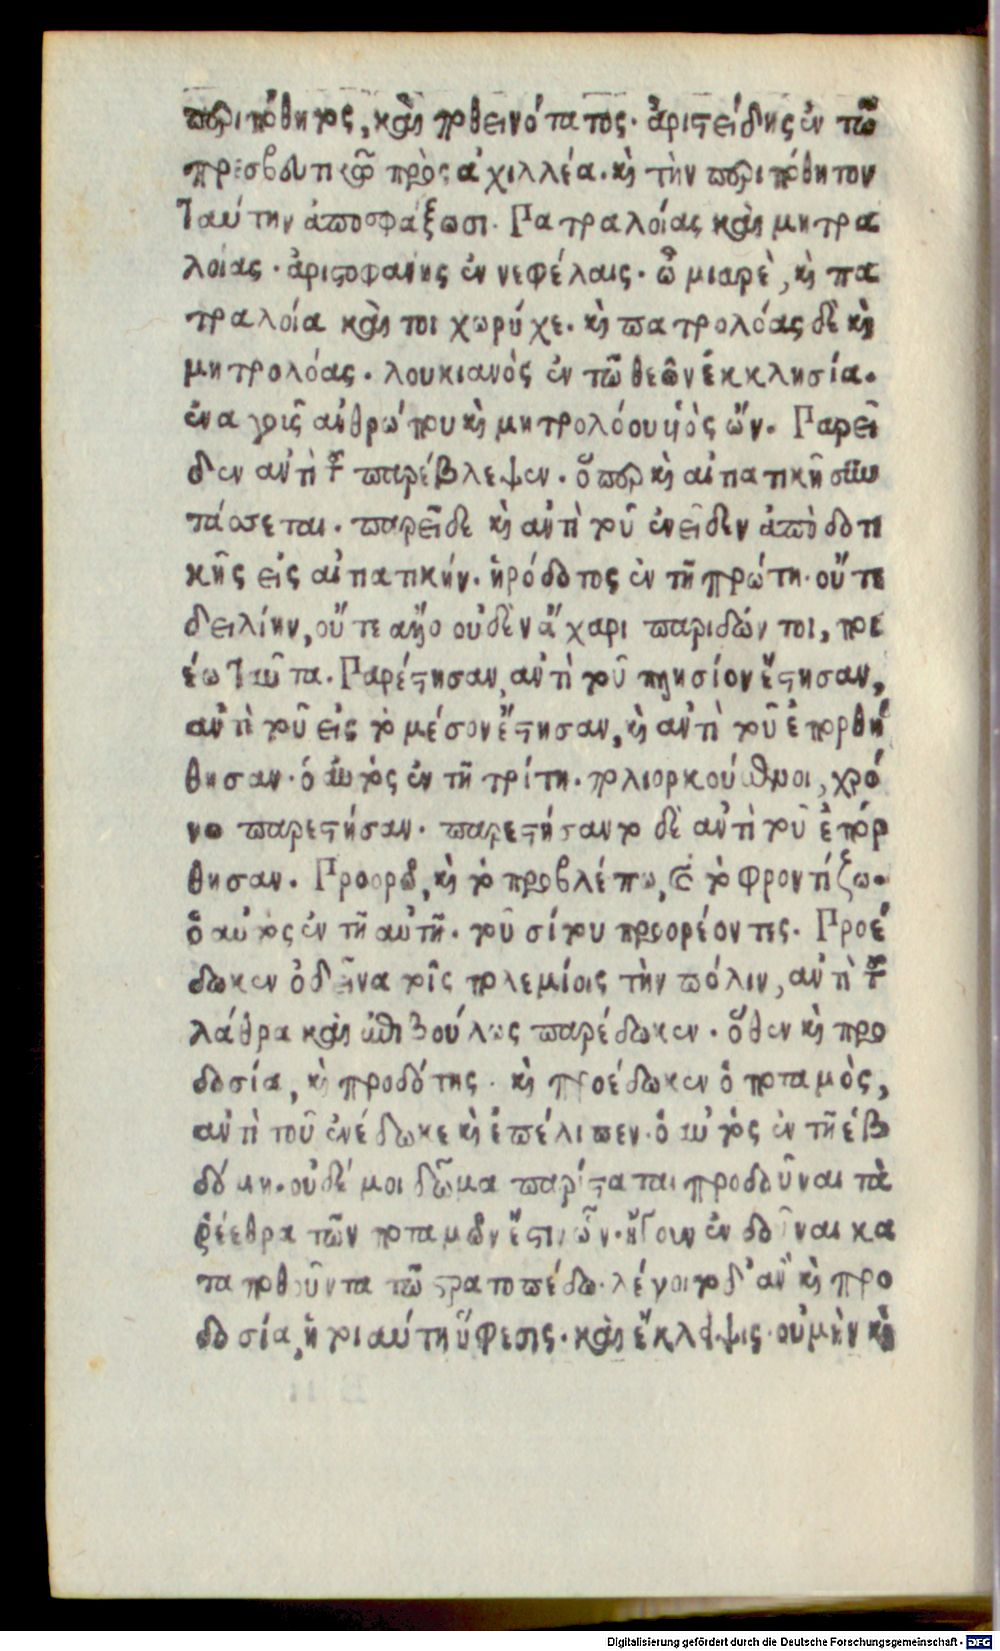 περιπόθητος, καὶ ποθεινότατος. ἀριστείδης ἐν τῶ
πρεσβευτικῶ πρὸς ἀχιλλέα. καὶ τὴν περιπόθητον
ταύτην ἀποσφάξωσι. Πατραλοίας καὶ μητρα
λοίας. ἀριστοφάνης ἐν νεφέλαις. ὦ μιαρὲ, καὶ πα
τραλοία καὶ τοιχωρύχε. καὶ πατρολόας δὲ καὶ
μητρολόας. λουκιανὸς ἐν τῶ θεῶν ἐκκλησία.
ἐναγοῦς ἀνθρώπου καὶ μητρολόου υἱὸς ὤν. Παρεῖ
δεν ἀντὶ τοῦ παρέβλεψεν. ὅπερ καὶ αἰτιατικῆ συν
τάσσεται. παρεῖδε καὶ ἀντὶ τοῦ ἐνεῖδεν ἀπὸ δοτι
κῆς εἰς αἰτιατικήν. ἡρόδοτος ἐν τῆ πρώτη. οὔτε
δειλίην, οὔτε ἄλλο οὐδὲν ἄχαρι παριδών τοι, ποι
έω ταῦτα. Παρέστησαν, ἀντὶ τοῦ πλησίον ἔστησαν,
ἀντὶ τοῦ εἰς τὸ μέσον ἔστησαν, καὶ ἀντὶ τοῦ ἐπορθή
θησαν. ὁ αὐτὸς ἐν τῆ τρίτη. πολιορκούμενοι, χρό
νω παρεστήσαν. παρεστήσαντο δὲ ἀντὶ τοῦ ἐπόρ
θησαν. Προορῶ, καὶ τὸ προβλέπω, καὶ τὸ φροντίζω.
ὁ αὐτὸς ἐν τῆ αὐτῆ. τοῦ σίτου προορέοντες. Προέ
δωκεν ὁ δεῖνα τοῖς πολεμίοις τὴν πόλιν, ἀντὶ τοῦ
λάθρα καὶ ἐπιβούλως παρέδωκεν. ὅθεν καὶ προ
δοσία, καὶ προδότης. καὶ προέδωκεν ὁ ποταμὸς,
ἀντὶ τοῦ ἐνέδωκε καὶ ἐπέλιπεν. ὁ αὐτὸς ἐν τῆ ἑβ
δόμη. οὐδέ μοι δῶμα παρίσταται προδοῦναι τὰ
ῥέεθρα τῶν ποταμῶν ἔστιν ὧν. ἤγουν ἐνδοῦναι κα
ταποθοῦντα τῶ στρατοπέδω. λέγοιτο δ' ἂν καὶ προ
δοσία, ἡ τοιαύτη ὕφεσις. καὶ ἔκλειψις. οὐ μὴν καὶ
Digitalisierung gefördert durch die Deutsche Forschungsgemeinschaft - DFG